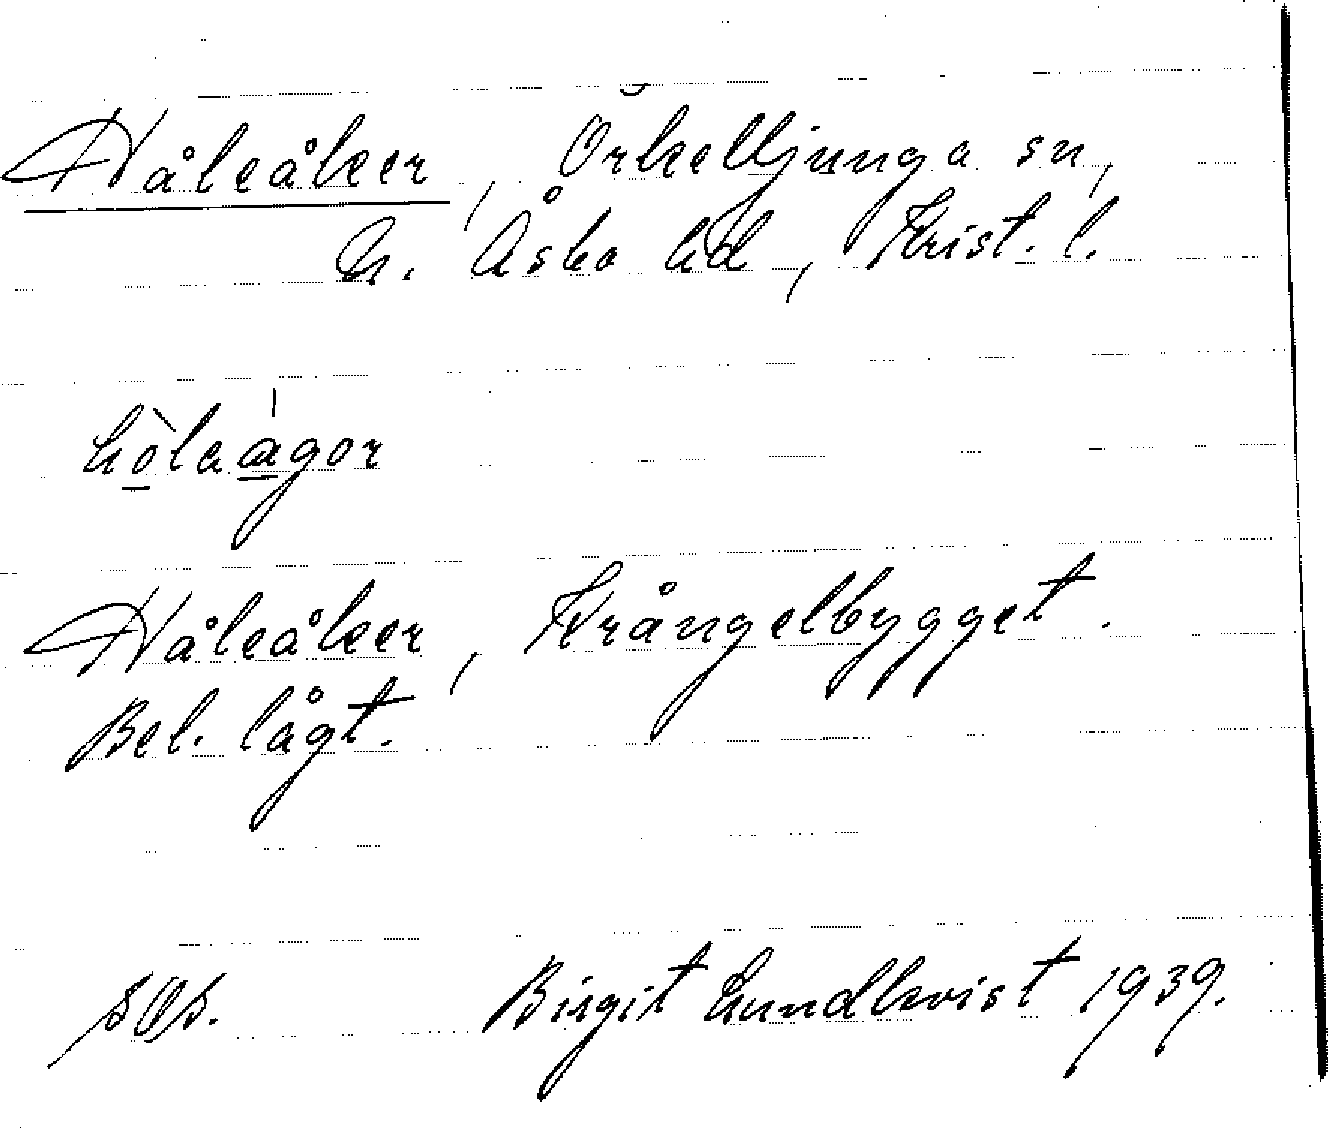 Håleåker, Örkelljunga sn,
N. Åsbo hd, Krist. l.
hòlaágor
Håleåker, Krångelbygget.
Bel. lågt.
Birgit Lundkvist 1939.